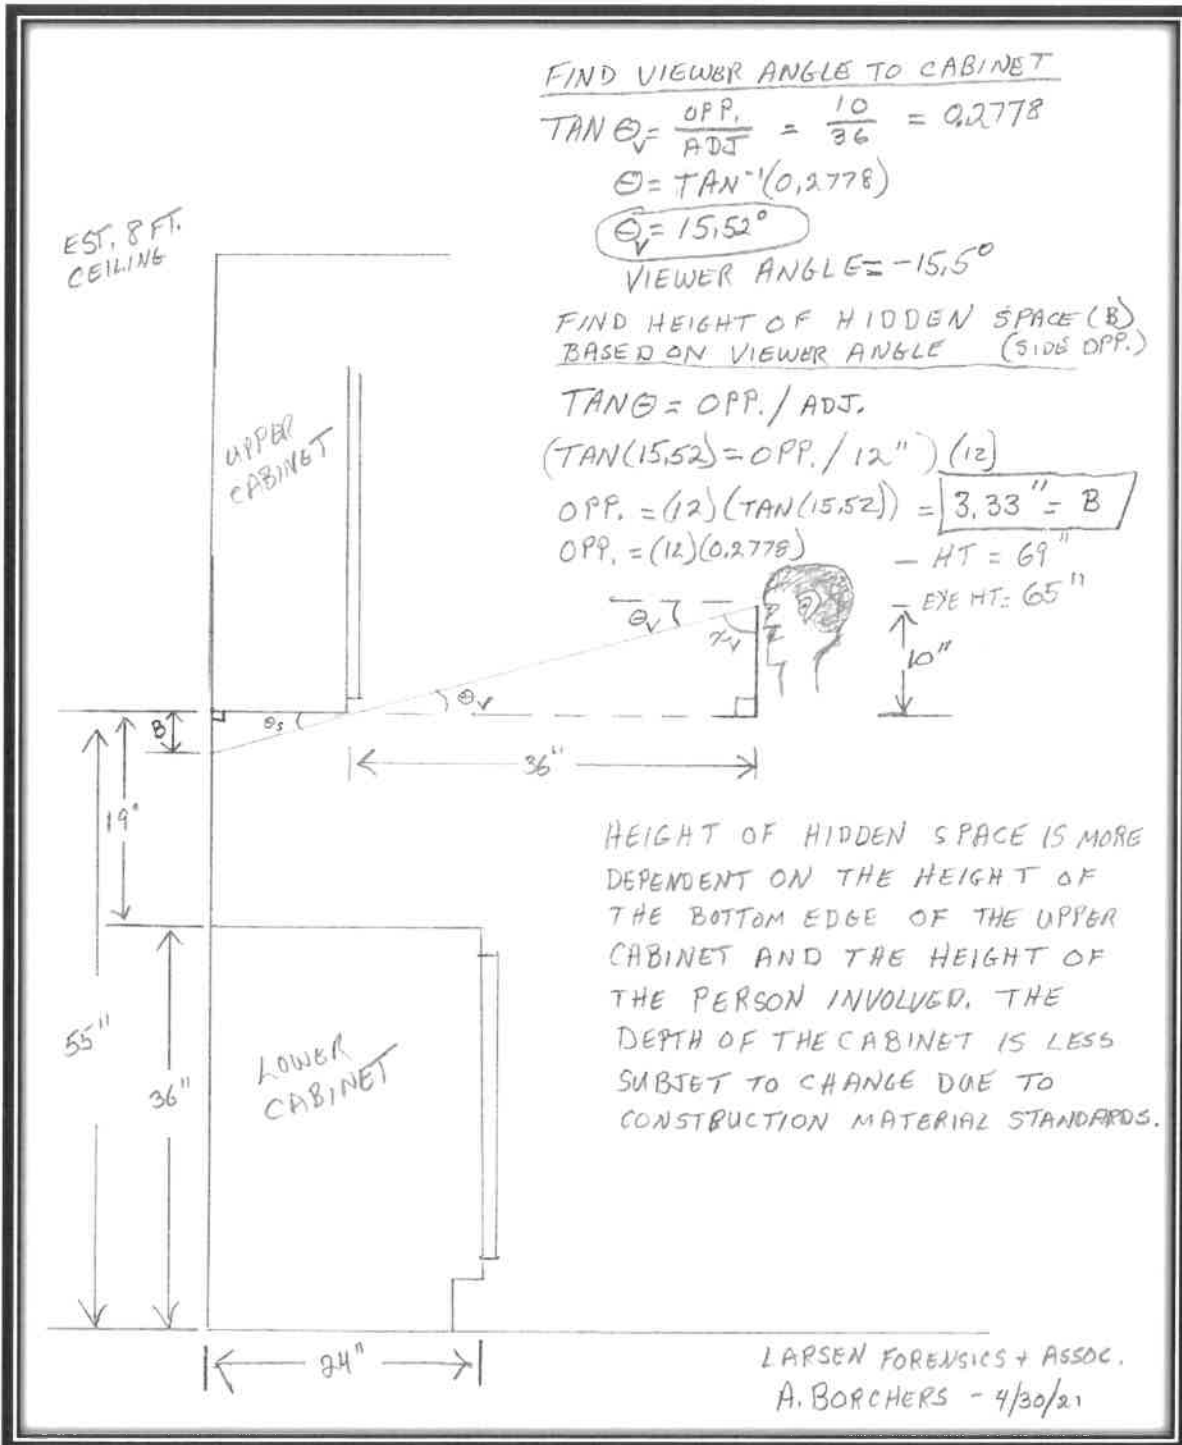 FIND VIEWER ANGLE TO CABINET
TAN Θv = OPP. / ADJ = 10 / 36 = 0.2778
Θ = TAN⁻¹(0.2778)
Θv = 15.52°
VIEWER ANGLE = -15.5°
FIND HEIGHT OF HIDDEN SPACE (B)
BASED ON VIEWER ANGLE (SIDE OPP.)
TANΘ = OPP. / ADJ.
(TAN(15.52) = OPP. / 12") (12)
OPP. = (12)(TAN(15.52)) = 3.33" = B
OPP. = (12)(0.2778)
- HT = 69"
- EYE HT = 65"
EST. 8 FT.
CEILING
UPPER
CABINET
Θv
10"
B
Θs
Θv
36"
19"
HEIGHT OF HIDDEN SPACE IS MORE
DEPENDENT ON THE HEIGHT OF
THE BOTTOM EDGE OF THE UPPER
CABINET AND THE HEIGHT OF
THE PERSON INVOLVED. THE
DEPTH OF THE CABINET IS LESS
SUBJET TO CHANGE DUE TO
CONSTRUCTION MATERIAL STANDARDS.
55"
36"
LOWER
CABINET
24"
LARSEN FORENSICS + ASSOC.
A. BORCHERS - 4/30/21